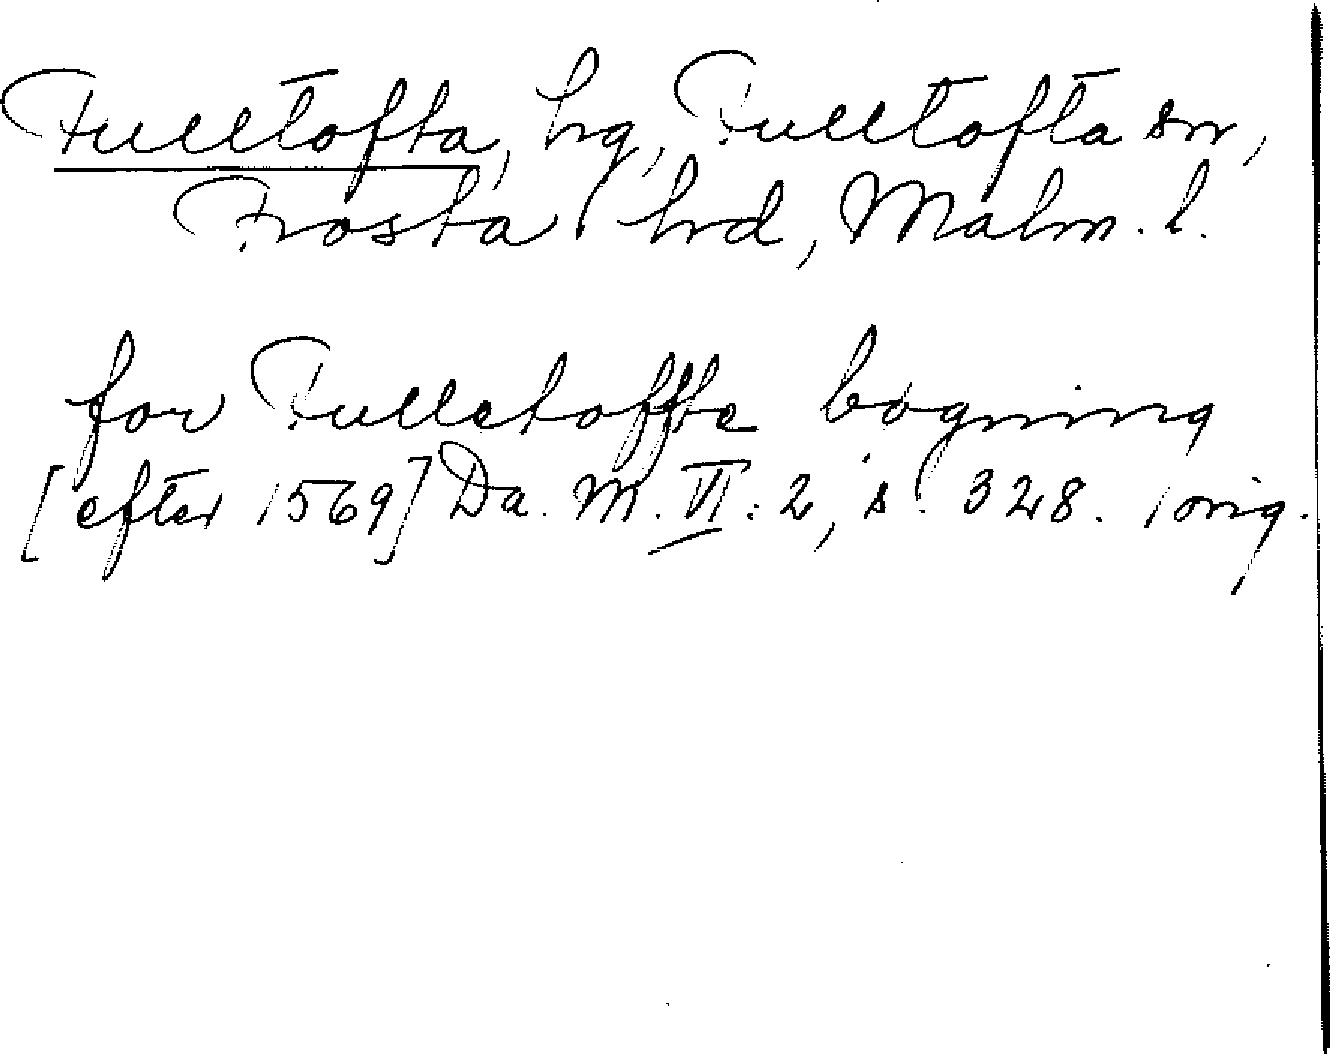 Fulltofta, hg, Fulltofta sn,
Frosta hrd, Malm. l.
for Fulletoffte bogning
[efter 1569] Da. M. VI: 2, s. 328. 1 orig.